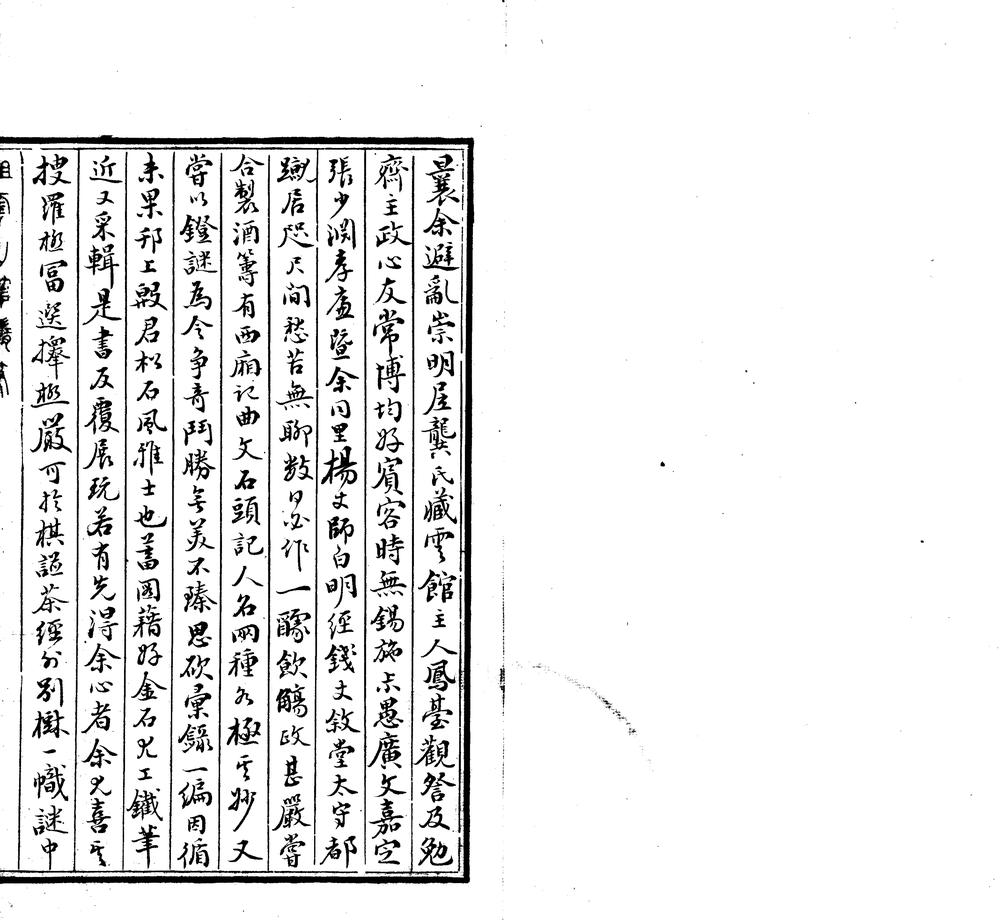 曩余避亂崇明居龔氏藏雲館主人鳳臺觀詧及勉
齋主政心友常博均好賓客時無錫施叔愚廣文嘉定
張少淵孝廉暨余同里楊丈師白明經錢丈敘堂太守都
蹴居咫尺間愁苦無聊數日必作一醵飲觴政甚嚴嘗
合製酒籌有西廂記曲文石頭記人名兩種各極其妙又
嘗以鐙謎為令爭奇鬥勝無美不臻思欲彙錄一編因循
未果邗上殷君松石風雅士也蓄圖籍好金石尤工鐵筆
近又采輯是書反覆展玩若有先得余心者余尤喜其
搜羅極富選擇極嚴可於棋譜茶經外別樹一幟謎中